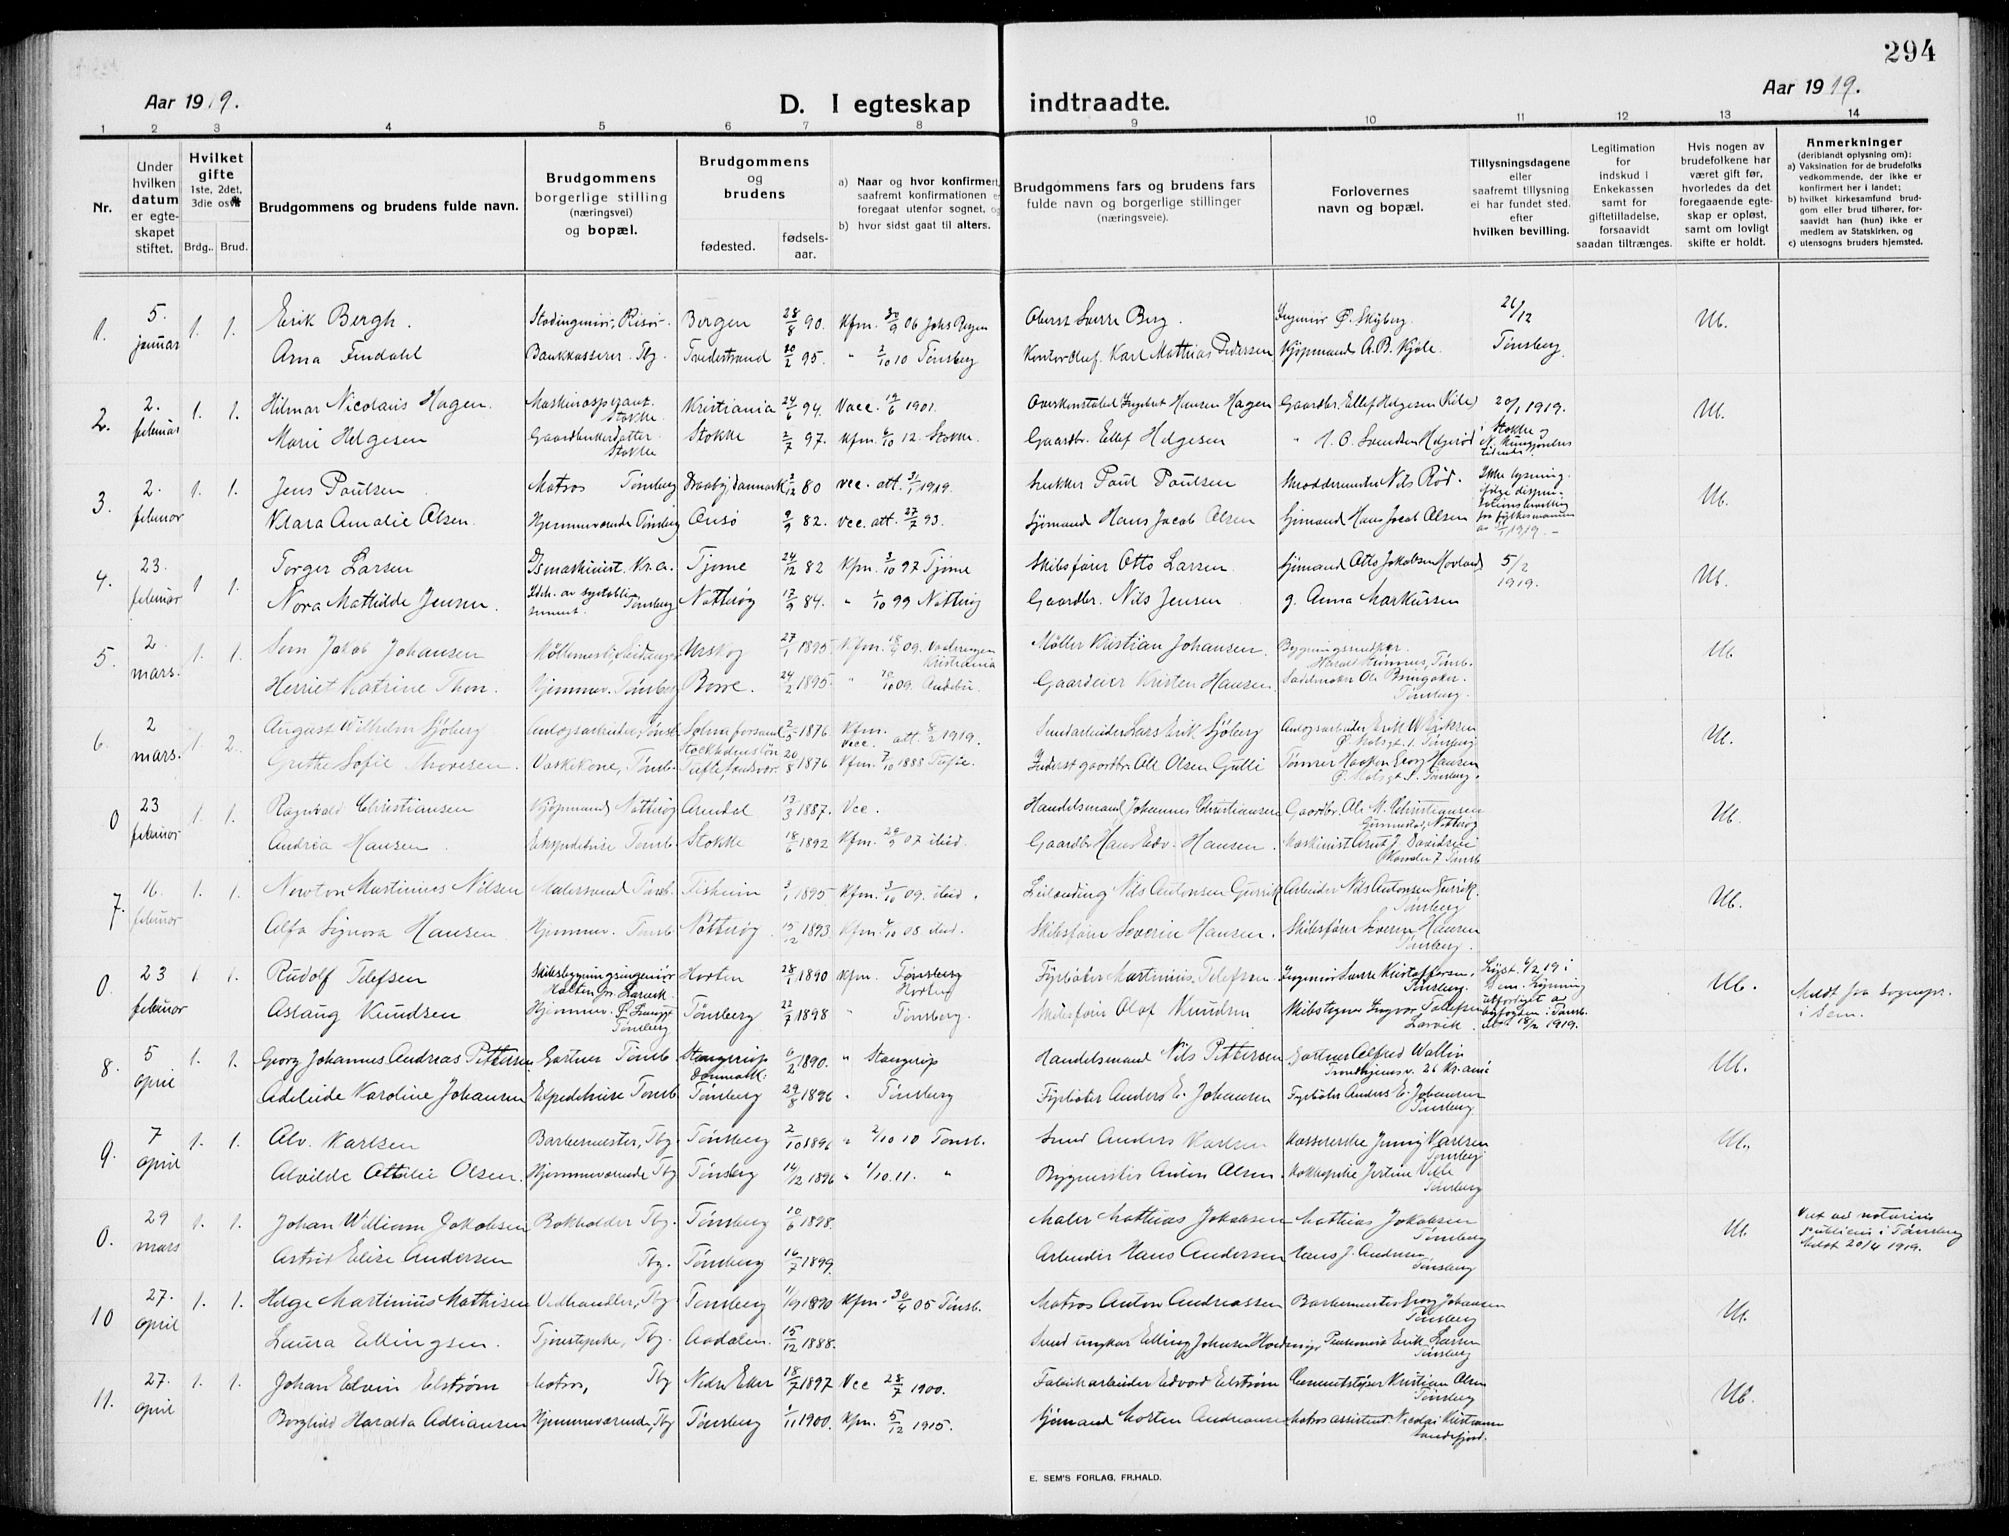 294
Aar 1919.
D. I egteskap indtraadte.
Aar 1919.
1 2 3 4 5 6 7 8 9 10 11 12 13 14
Nr.
Under hvilken datum er egteskapet stiftet.
Hvilket gifte 1ste, 2det, 3die osv.
Brdg. Brud.
Brudgommens og brudens fulde navn.
Brudgommens borgerlige stilling (næringsvei) og bopæl.
Brudgommens og brudens
fødested. fødselsaar.
a) Naar og hvor konfirmert, saafremt konfirmationen er foregaat utenfor sognet, og
b) hvor sidst gaat til alters.
Brudgommens fars og brudens fars fulde navn og borgerlige stillinger (næringsveie).
Forlovernes navn og bopæl.
Tillysningsdagene eller saafremt tillysning ei har fundet sted, efter hvilken bevilling.
Legitimation for indskud i Enkekassen samt for giftetilladelse, forsaavidt saadan tiltrænges.
Hvis nogen av brudefolkene har været gift før, hvorledes da det foregaaende egteskap er opløst, samt om lovligt skifte er holdt.
Anmerkninger (deriblandt oplysning om):
a) Vaksination for de brudefolks vedkommende, der ikke er konfirmert her i landet;
b) hvilket kirkesamfund brudgom eller brud tilhører, forsaavidt han (hun) ikke er medlem av Statskirken, og
c) utensogns bruders hjemsted.
1. 5. januar 1. 1. Erik Bergh. Risør. Bergen 28/8 90. Kfm. 30/9 06 Johs Bergen Oberst Sverre Berg. Ingeniør 26/12 Ub.
Anna Findahl Bankkasserer Tbg. Tvedestrand 20/2 95. " 2/10 10 Tønsberg Karl Mathias Pedersen Kjøpmand A.B. Kjøle. Tønsberg.
2. 2. februar 1. 1. Hilmar Nicolaus Hagen. Maskinaspirant. Stokke Kristiania 24/6 94. Vacc. 19/6 1901. Overkonstabel Ingebret Hansen Hagen Gaardbr. Ellef Helgesen 20/1 1919. Ub.
Marie Helgesen Gaardbrukerdatter. Stokke Stokke 2/7 97. Kfm. 6/10 12. Stokke. Gaardbr. Ellef Helgesen i Stokke
3. 2. februar 1. 1. Jens Paulsen Matros Tønsberg Danmark 2/12 80 Vcc. att. 31/1 1919. Snekker Paul Paulsen Nils Rød. Ikke lysning. Ub.
Klara Amalie Olsen. Hjemmeværende Tønsberg Onsø 9/9 82. Vcc. att. 27/7 93. Sjømand Hans Jacob Olsen Sjømand Hans Jacob Olsen 1919.
4. 23. februar 1 1. Torger Larsen Kr.a. Tjøme 24/12 82 Kfm. 3/10 97 Tjøme Skibsfører Otto Larsen. Sjømand Otto Jakobsen 5/2 1919. Ub.
Nora Mathilde Jensen. Tønsberg Nøtterøy 17/9 84. " 1/10 99 Nøtterøy Gaardbr. Nils Jensen g. Anna Markussen
5. 2. mars. 1. 1. Sem Jakob Johansen Urskog 27/1 1895 Kfm. 18/4 09. Vaalerengen Kristiania Møller Kristian Johansen. Tønsb. Ub.
Herriet Katrine Thon. Hjemmev. Tønsberg Borre. 24/2 1895. " 10/10 09. Andebu. Gaardeier Kristen Hansen. Sadelmaker Tønsberg.
6. 2 mars. 1. 2. August Wilhelm Sjøberg Anlægsarbeider, Tønsb. 2/5 1876 Kfm. Vacc. att. 8/2 1919. Lars Erik Sjöberg Anlægsarbeider Erik W. Eriksen Tønsberg Ub.
Grethe Sofie Thoresen. Vaskekone, Tønsb. 20/8 1876 Kfm. 7/10 1888 Ole Olsen Gulli Tømrer Haakon Georg Hansen Tønsberg.
0 23 februar 1. 1. Ragnvald Christiansen Kjøpmand Nøtterøy Arendal 13/3 1887. Vcc. Handelsmand Johannes Christiansen Gaardbr. Ole M. Christiansen Nøtterøy Ub.
Andrea Hansen. Ekspeditrise Tønsb. Stokke 18/6 1892 Kfm. 20/9 07 ibid. Gaardbr. Hans Edv. Hansen. Maskinist Tønsb.
7. 16. februar 1. 1. Newton Martinius Nilsen Malersvend Tønsb. 2/1 1895 Kfm. 3/10 09. ibid. Nils Antonsen Arbeider Nils Antonsen Tønsberg Ub.
Alfa Signora Hansen Hjemmev. Tønsb. Nøtterøy. 15/12 1893 Kfm. 4/10 08 ibid. Skibsfører Severin Hansen. Skibsfører Severin Hansen Tønsberg.
0. 23 februar 1 1. Rudolf Telefsen Skibsbygningsingeniør Larvik. Horten 28/1 1890 Kfm. Tønsberg Horten Fyrbøter Martinius Telefsen Ingeniør Sverre Kristoffersen. Tønsberg. Lyst 6/2 19 i Sem. Ub. Meldt fra sognepr. i Sem.
Aslaug Knudsen Hjemmev. Tønsberg Tønsberg 22/7 1898 " Tønsberg. Skibsfører Olaf Knudsen Ingvar Tollefsen Larvik 18/2 1919.
8. 5 april 1. 1. Georg Johannes Andreas Pettersen Gartner Tønsb. Stangerup Danmark. 6/2 1890. " Stangerup Handelsmand Nils Pettersen Gartner Alfred Wallin Trondhjemsv. 26 Kr.ania Ub.
Adeleide Karoline Johansen Ekspeditrise Tønsb. Tønsberg 29/8 1896 " Tønsberg Fyrbøter Anders E. Johansen Fyrbøter Anders E. Johansen Tønsberg
9. 7 april 1. 1. Alv. Karlsen Barbermester, Tbg. Tønsberg 2/10 1896 " 2/10 10 Tønsb. Smed Anders Karlsen Kassererske Jenny Karlsen Tønsberg Ub.
Alvilde Ottilie Olsen. Hjemmeværende Tbg Tønsberg 14/12 1896 " 1/10.11. " Bygmester Anton Olsen. Kokkepike Jertine Tønsberg
0. 29 mars 1. 1. Johan William Jakobsen Bokholder Tbg. Tønsberg 10/6 1898. Maler Mathias Jakobsen Mathias Jakobsen Tønsberg Ub. Viet av notarius publicus i Tønsberg Meldt 20/4 1919.
Astrid Elise Andersen Tbg. Tønsberg 16/7 1899. Arbeider Hans Andersen Hans J. Andersen, Tønsberg
10 27. april 1. 1. Helge Martinius Mathisen Vedhandler, Tbg Tønsberg 1/9 1890 Kfm. 30/4 05 Tønsb. Matros Anton Andreassen Barbermester Georg Johansen Tønsberg Ub.
Laura Ellingsen. Tjenestepike, Tbg. Aadalen. 15/12 1888. Smed ungkar Elling Johnsen Erik Larsen Tønsberg
11. 27. april 1. 1. Johan Edvin Elstrøm Matros, Tbg Nedre Eker 18/7 1897 Vcc 28/7 1900. Fabrikarbeider Edvard Elstrøm Cementstøper Kristian Olsen Tønsberg Ub.
Borghild Haralda Adriansen Hjemmeværende, Tbg Tønsberg 1/11 1900. Kfm. 5/12 1915. Sjømand Morten Andreassen Matros assistent Nicolai Kristiansen Sandefjord.
E. SEM'S FORLAG, FR.HALD.